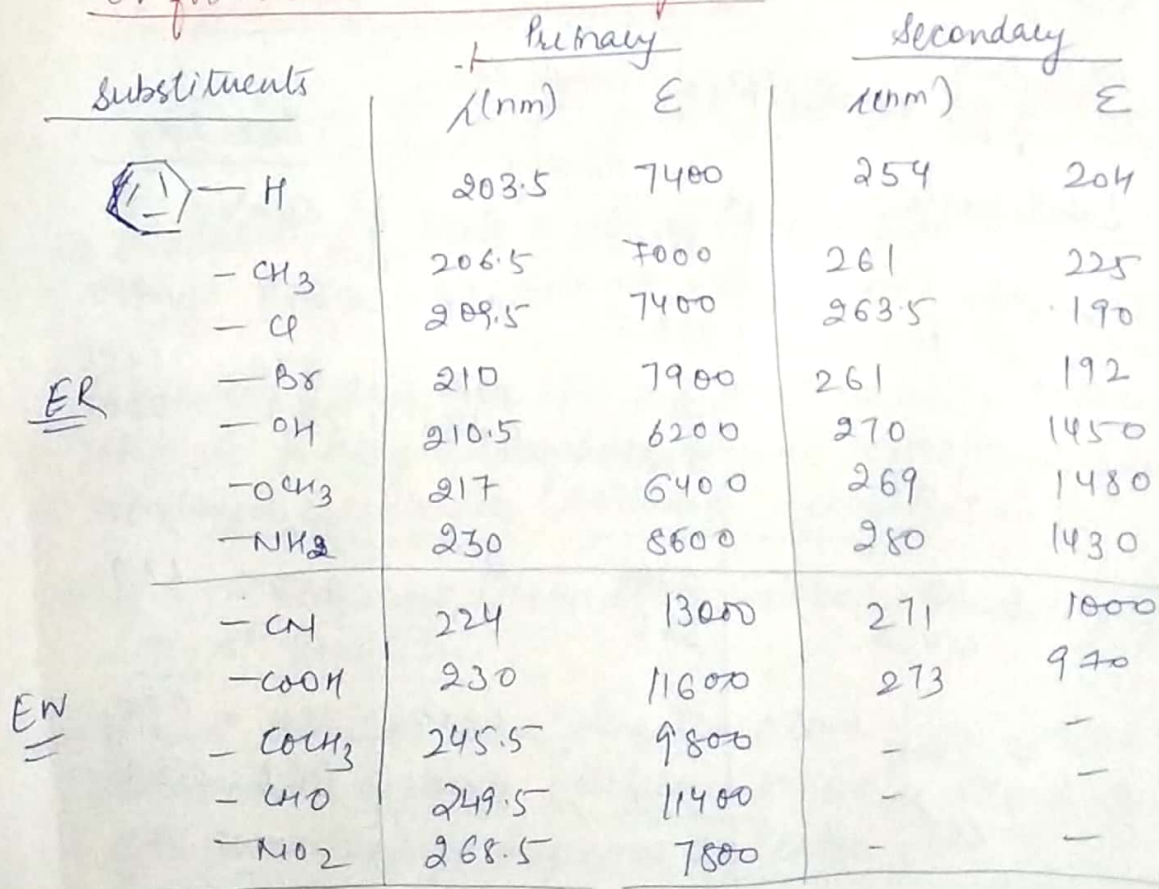 Primary Secondary
Substituents λ(nm) ε λ(nm) ε
— H 203.5 7400 254 204
- CH3 206.5 7000 261 225
- Cl 209.5 7400 263.5 190
ER — Br 210 7900 261 192
— OH 210.5 6200 270 1450
- OCH3 217 6400 269 1480
- NH2 230 8600 280 1430
- CN 224 13000 271 1000
- COOH 230 11600 273 970
EW - COCH3 245.5 9800 - -
- CHO 249.5 11400 - -
- NO2 268.5 7800 - -